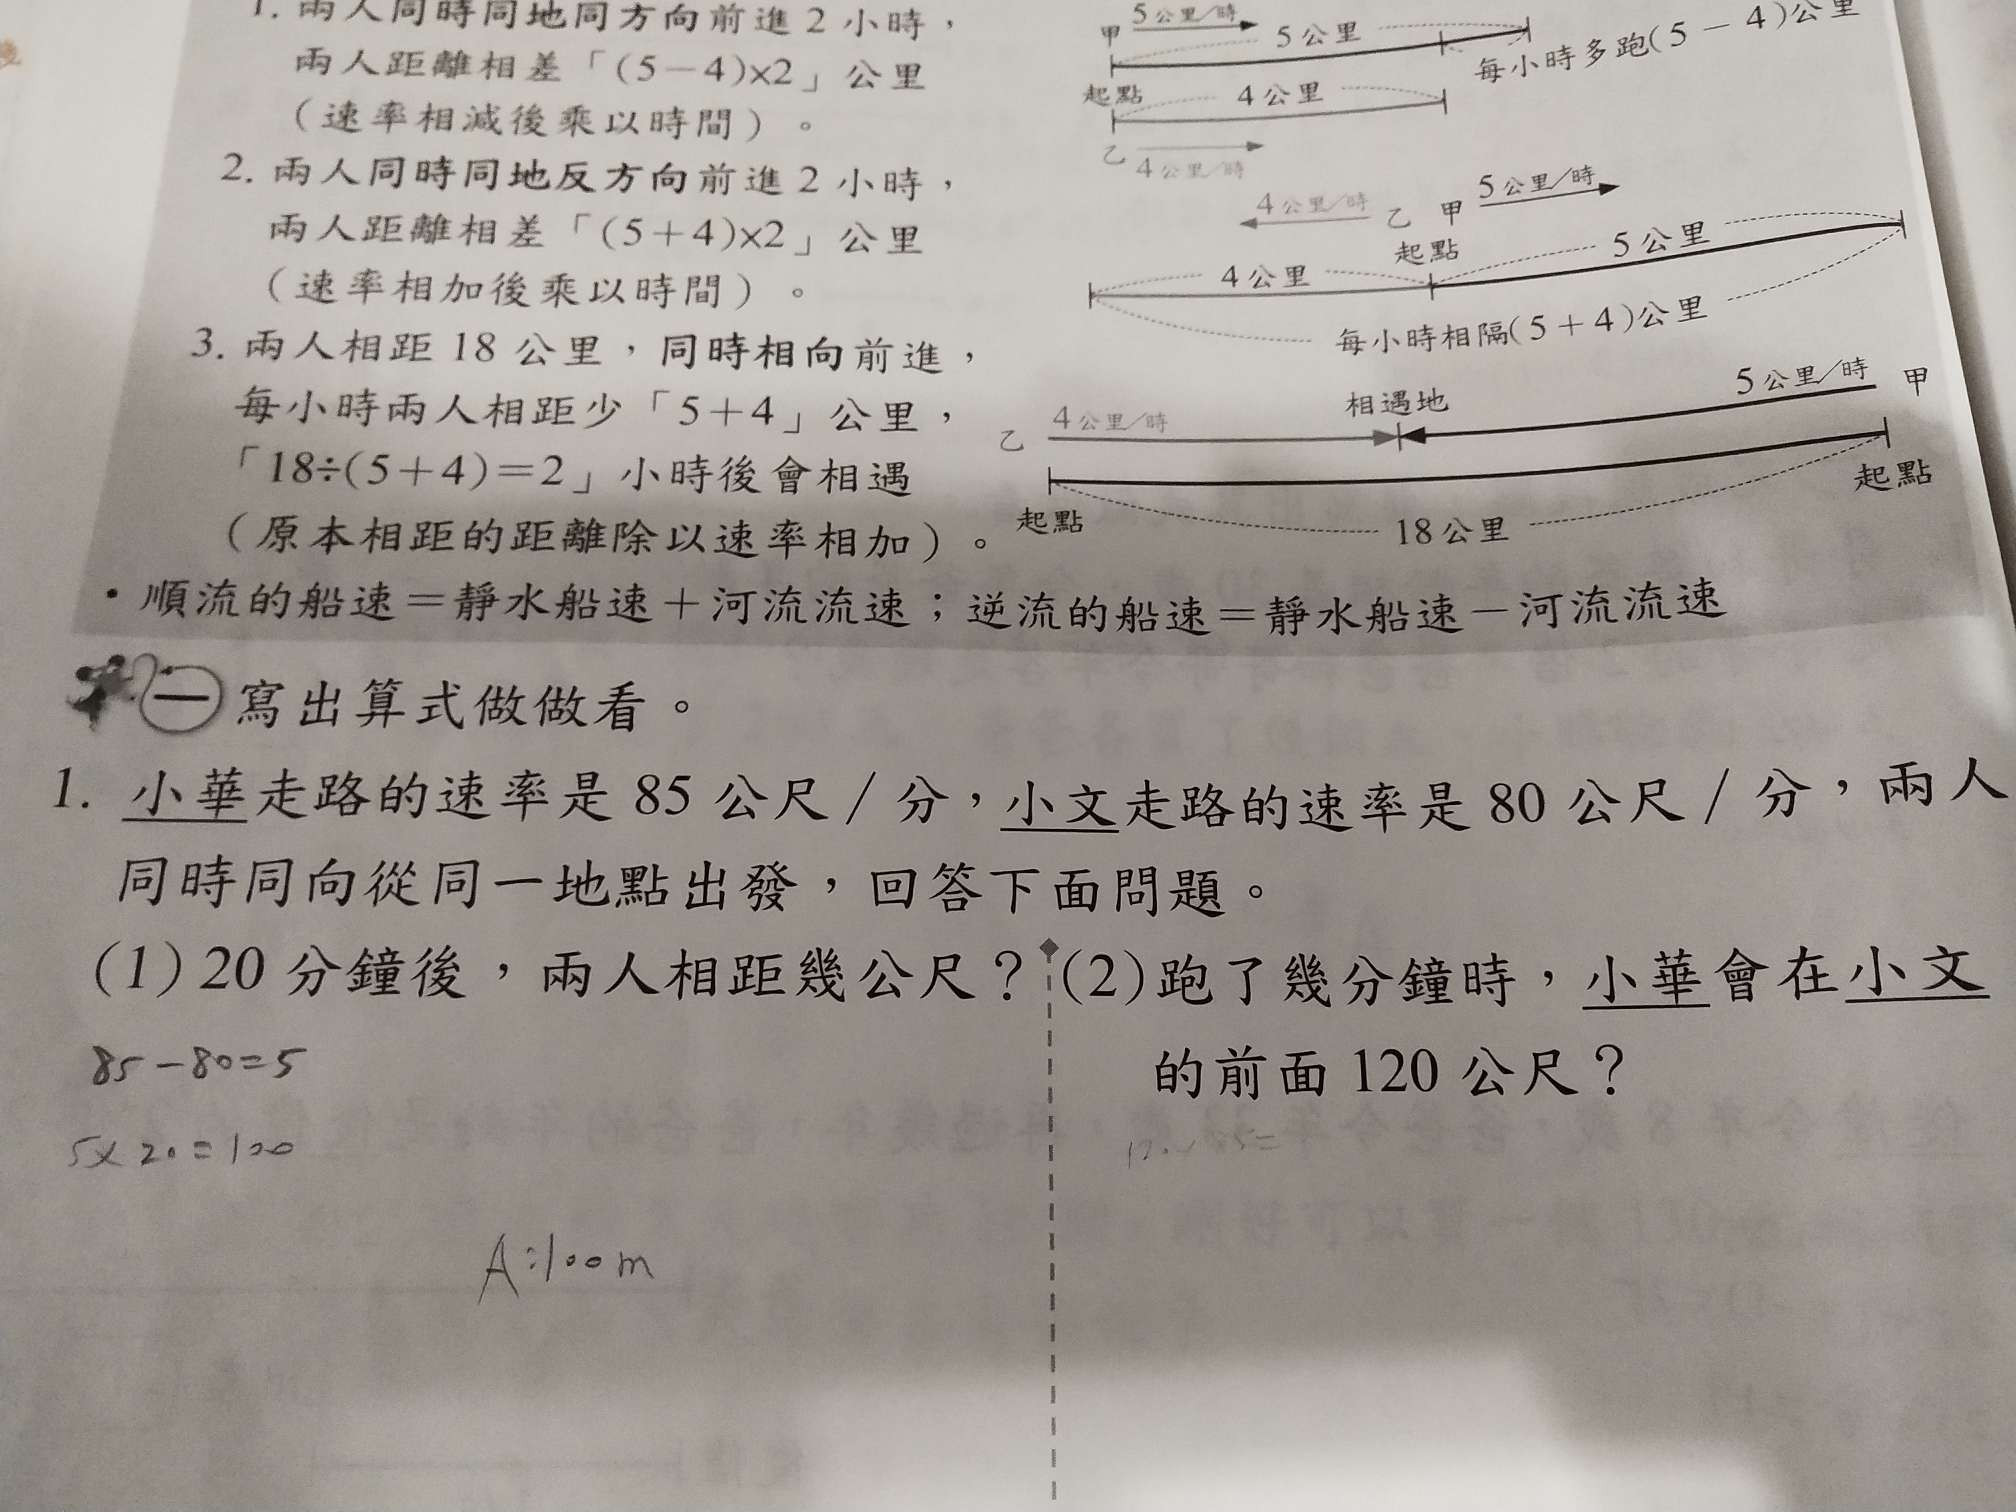 1. 兩人同時同地同方向前進 2 小時，
兩人距離相差「(5－4)×2」公里
（速率相減後乘以時間）。
甲 5 公里／時
5 公里
每小時多跑(5 － 4)公里
起點
4 公里
乙 4 公里／時
2. 兩人同時同地反方向前進 2 小時，
兩人距離相差「(5＋4)×2」公里
（速率相加後乘以時間）。
4 公里／時 乙 甲 5 公里／時
起點
4 公里 5 公里
每小時相隔(5＋4)公里
3. 兩人相距 18 公里，同時相向前進，
每小時兩人相距少「5＋4」公里，
「18÷(5＋4)＝2」小時後會相遇
（原本相距的距離除以速率相加）。
乙 4 公里／時 相遇地 5 公里／時 甲
起點 18 公里 起點
・順流的船速＝靜水船速＋河流流速；逆流的船速＝靜水船速－河流流速
一 寫出算式做做看。
1. 小華走路的速率是 85 公尺 / 分，小文走路的速率是 80 公尺 / 分，兩人
同時同向從同一地點出發，回答下面問題。
(1) 20 分鐘後，兩人相距幾公尺？
85－80=5
5×20=100
A:100m
(2) 跑了幾分鐘時，小華會在小文
的前面 120 公尺？